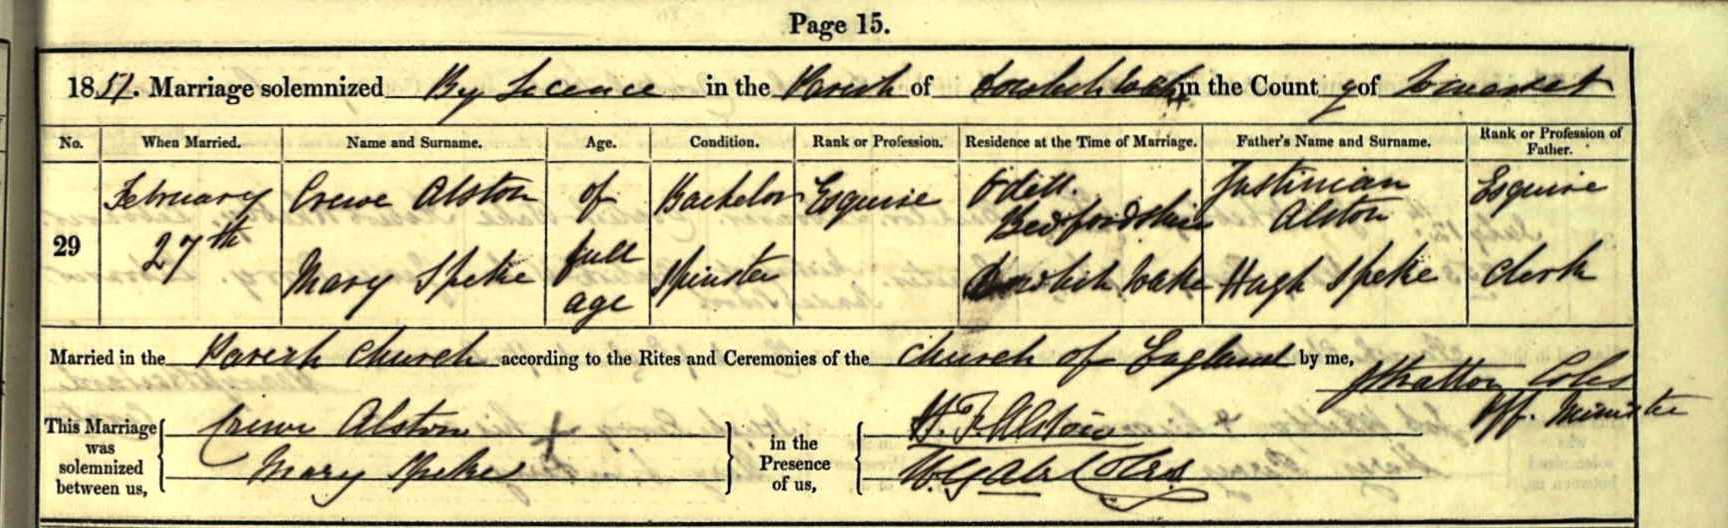 Page 15.
1851. Marriage solemnized By Licence in the Parish of Dowlish Wake in the County of Somerset
No. When Married. Name and Surname. Age. Condition. Rank or Profession. Residence at the Time of Marriage. Father's Name and Surname. Rank or Profession of Father.
29 February 27th Crewe Alston of full age Bachelor Esquire Odell. Bedfordshire Justinian Alston Esquire
Mary Speke Spinster Dowlish Wake Hugh Speke Clerk
Married in the Parish Church according to the Rites and Ceremonies of the Church of England by me,
J Stratton Coles
Off. Minister
This Marriage was solemnized between us, Crewe Alston
Mary Speke
in the Presence of us, H. F. Alston